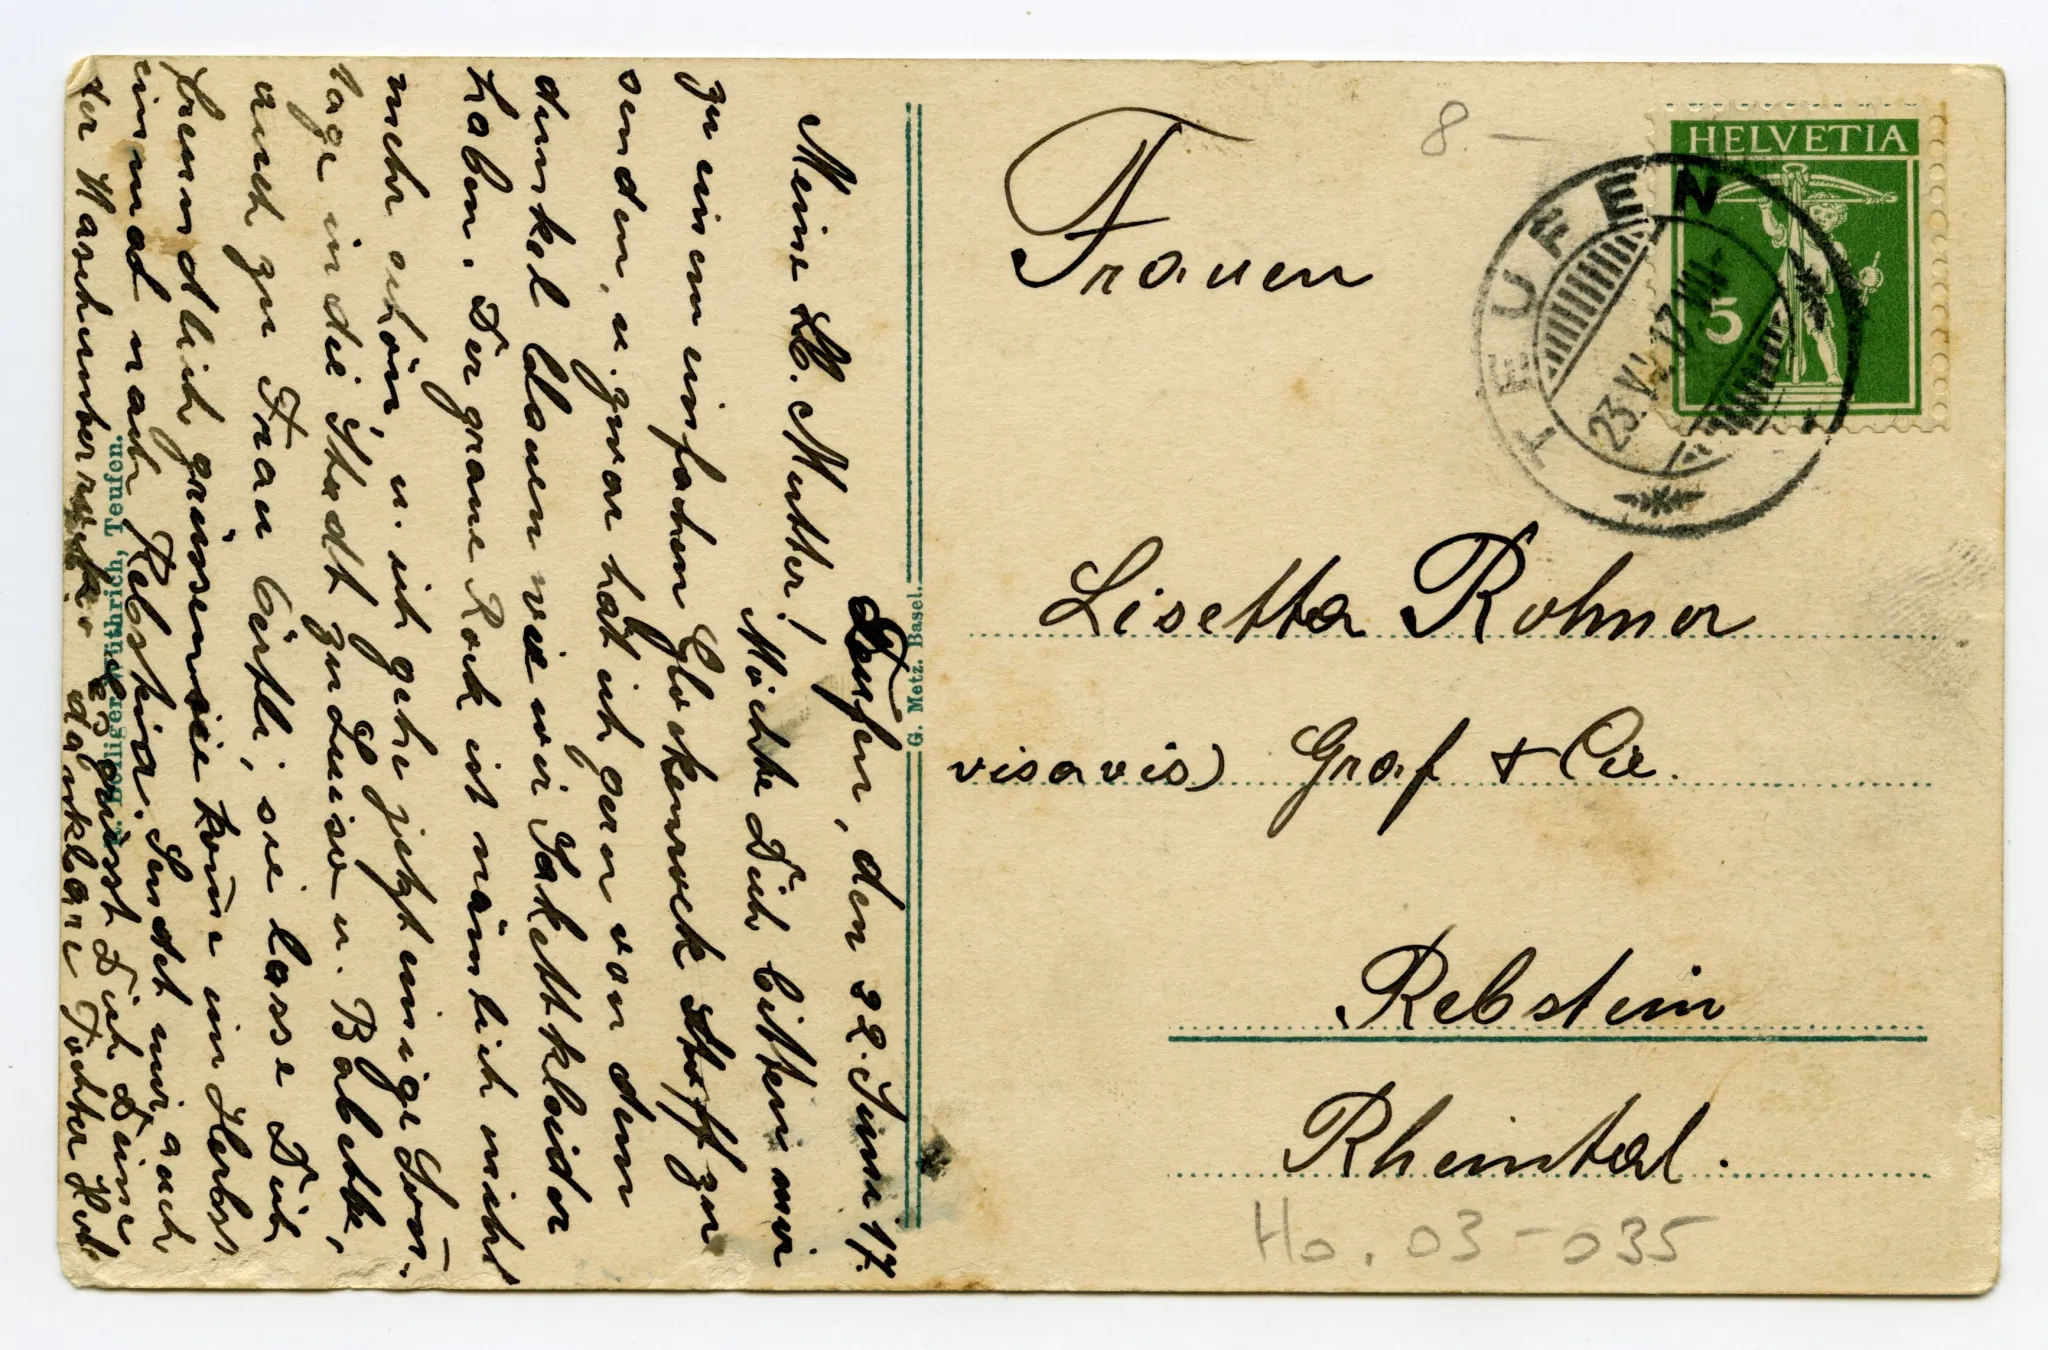 Teufen, den 22. Juni 17.
Meine Lb. Mutter!
Möchte Dich bitten mir
zu einem einfachen Glockenrock Stoff zu
senden, u. zwar hätt ich gern von dem
dunkel blauen wie wir Jakettkleider
haben. Der graue Rock ist nämlich nicht
mehr schön, u. ich gehe jetzt einige Son̄-
tage in die Stadt zu Luise u. Babette,
auch zu Frau Bürtli, sie lasse Dich
freundlich grüssen sie kom̄e im Herbst
einmal nach Rebstein. Sendet mir auch
der Haselnussstöcke. Es grüsst Dich Deine
dankbare Tochter
Frauen
Lisetta Rohner
visavis) Graf & Cie.
Rebstein
Rheintal.
8.-
Ho. 03-035
HELVETIA
5
TEUFEN
23.VI.17.VII-
G. Metz. Basel.
Wüthrich, Teufen.